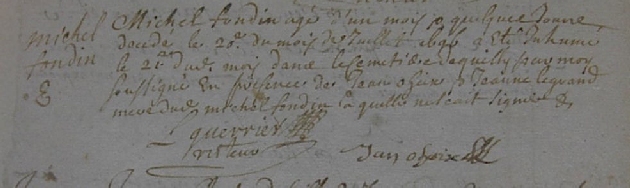 michel
fondin
Michel fondin agé d'un mois & quelque Jours
decedé le 20e. du mois de Juillet 1696 a eté Inhumé
le 21e dud. mois dans le cemetiere de quilly par moy
soussigné En presence de Jean opix & Jeanne legrand
mere dud. michel fondin laquelle ne scait signer &
guerrier
victeur
Jean opix